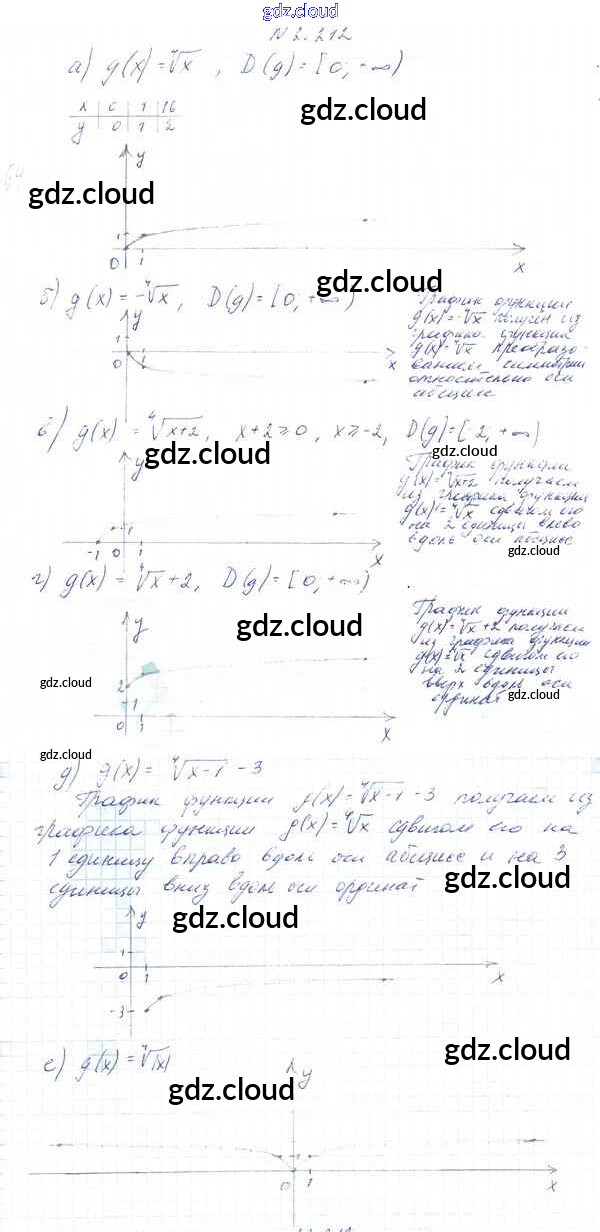 gdz.cloud
N 2.212
а) g(x) = ∜x , D(g) = [0; +∞)
x | 0 | 1 | 16
y | 0 | 1 | 2
y
gdz.cloud
gdz.cloud
1
0 1 x
gdz.cloud
б) g(x) = -∜x, D(g) = [0; +∞)
График функции
g(x) = -∜x получен из
графика функции
g(x) = ∜x преобразо-
ванием симметрии
относительно оси
абсцисс
y
1
0 1 x
в) g(x) = ∜x+2, x+2≥0, x≥-2, D(g) = [-2; +∞)
gdz.cloud
gdz.cloud
График функции
g(x) = ∜x+2 получаем
из графика функции
g(x) = ∜x сдвигом его
на 2 единицы влево
вдоль оси абсцисс
gdz.cloud
y
1
-1 0 1 x
г) g(x) = ∜x + 2, D(g) = [0; +∞)
График функции
g(x) = ∜x + 2 получаем
из графика функции
g(x) = ∜x сдвигом его
на 2 единицы
вверх вдоль оси
ординат
gdz.cloud
gdz.cloud
gdz.cloud
y
2
1
0 1 x
gdz.cloud
д) g(x) = ∜x-1 - 3
График функции g(x) = ∜x-1 - 3 получаем из
графика функции g(x) = ∜x сдвигом его на
1 единицу вправо вдоль оси абсцисс и на 3
единицы вниз вдоль оси ординат
gdz.cloud
gdz.cloud
y
1
0 1 x
-3
е) g(x) = ∜|x|
gdz.cloud
gdz.cloud
y
1
0 1 x